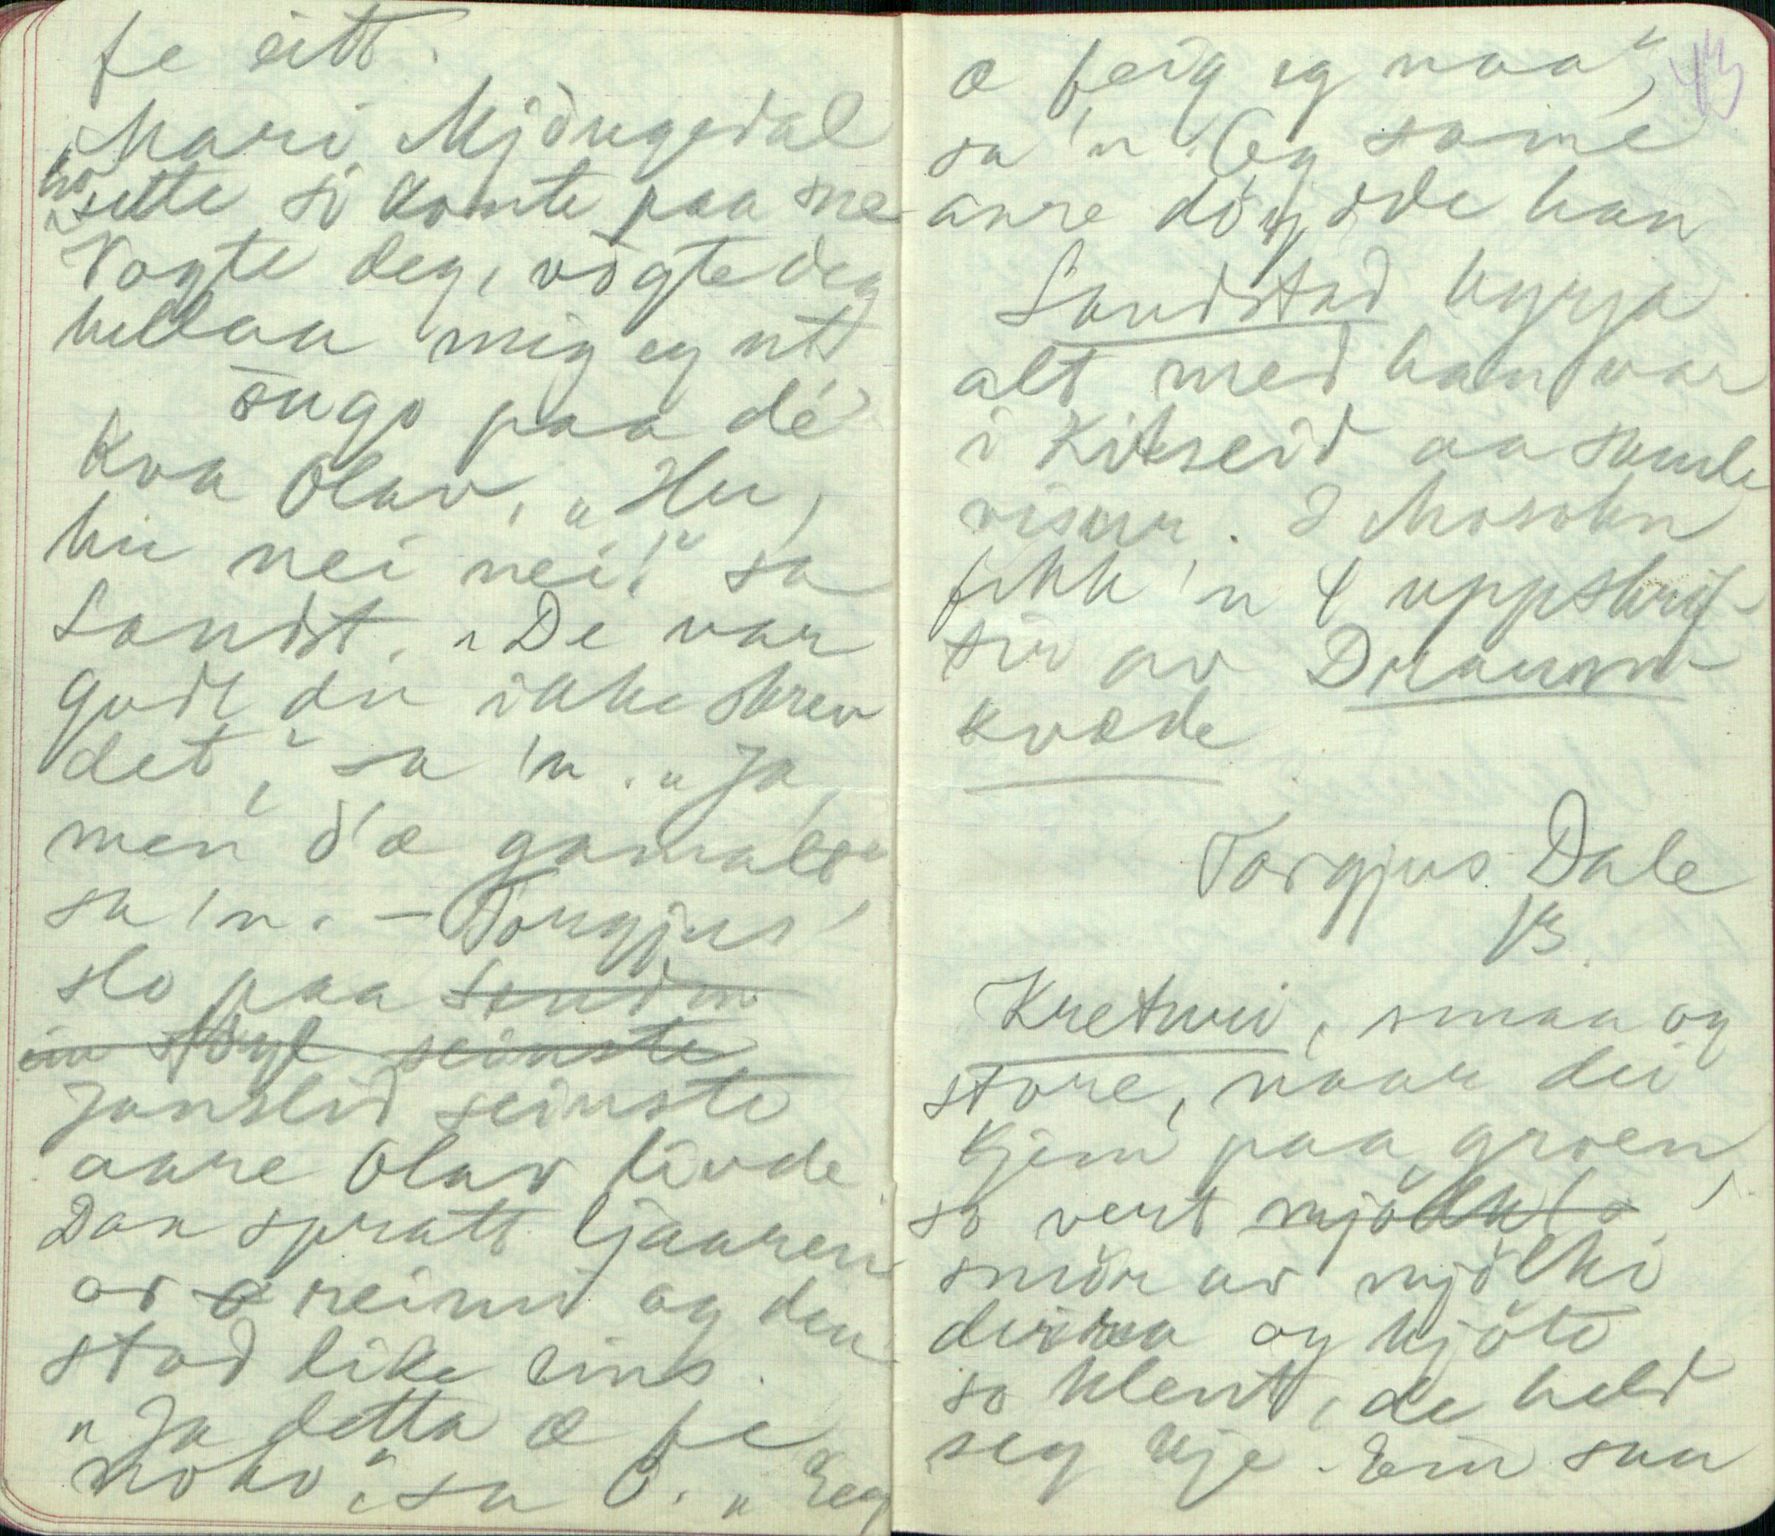 fe eitt.
Mari Mjöngedal
ho sette si konte paa sne
Vogte deg, vogte deg
hellaa mig eg ut
sugo paa dé
Kva Olav, „Hu,
hu nei nei!" sa
Landst. „De var
godt du ikke skrev
det," sa 'n. „Ja,
men d'æ gamalt"
sa 'n. – Torgjus
slo paa
seinste
Jonslid seinste
aare Olav livde.
Daa spratt ljaaren
or reimi og den
stod like eins.
„Ja detta æ fe
noko", sa O. „Eeg
æ feig eg naa",
sa 'n. Og same
aare döydde han
Landstad byrja
alt med han var
i Kitseid aa samle
visur. I Mosokn
fekk 'n 4 uppskrif-
tir av Draum-
kvæde
Torgjus Dale
13.
Kreturi, smaa og
store, naar dei
kjem paa groen,
so vert mjölki
smör av mjölki
deira og kjöte
so klent, de held
seg kje. Ein saa
43